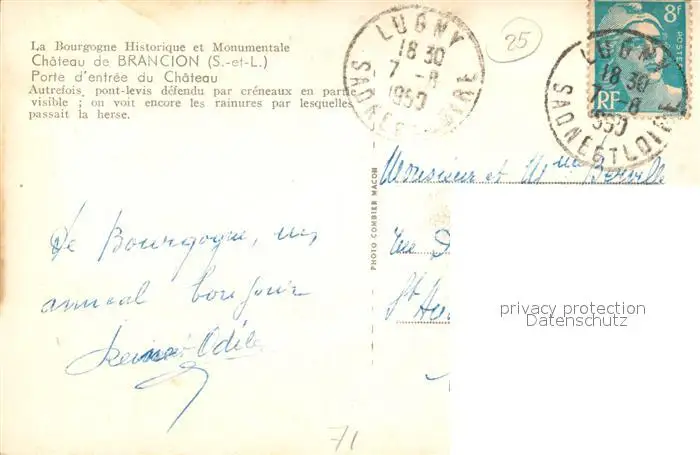 La Bourgogne Historique et Monumentale
Château de BRANCION (S.-et-L.)
Porte d'entrée du Château
Autrefois, pont-levis défendu par créneaux en partie
visible ; on voit encore les rainures par lesquelles
passait la herse.
LUGNY
18 30
7 - 8
1950
SAONE ET LOIRE
25
8f
POSTES
RF
LUGNY
18 30
7 - 8
1950
SAONE ET LOIRE
PHOTO COMBIER MACON
Monsieur et Mme Berville
St
privacy protection
Datenschutz
De Bourgogne, un
amical bonjour
Odile
71